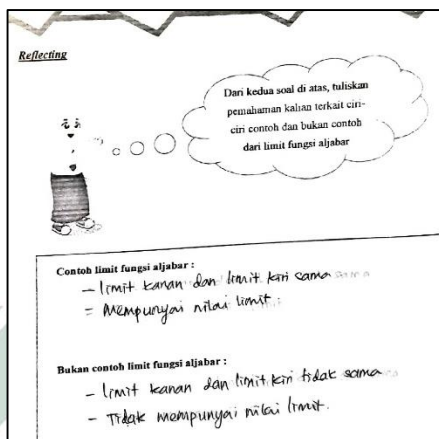 Reflecting
Dari kedua soal di atas, tuliskan
pemahaman kalian terkait ciri-
ciri contoh dan bukan contoh
dari limit fungsi aljabar
Contoh limit fungsi aljabar :
- limit kanan dan limit kiri sama
= Mempunyai nilai limit.
Bukan contoh limit fungsi aljabar :
- limit kanan dan limit kiri tidak sama
- Tidak mempunyai nilai limit.